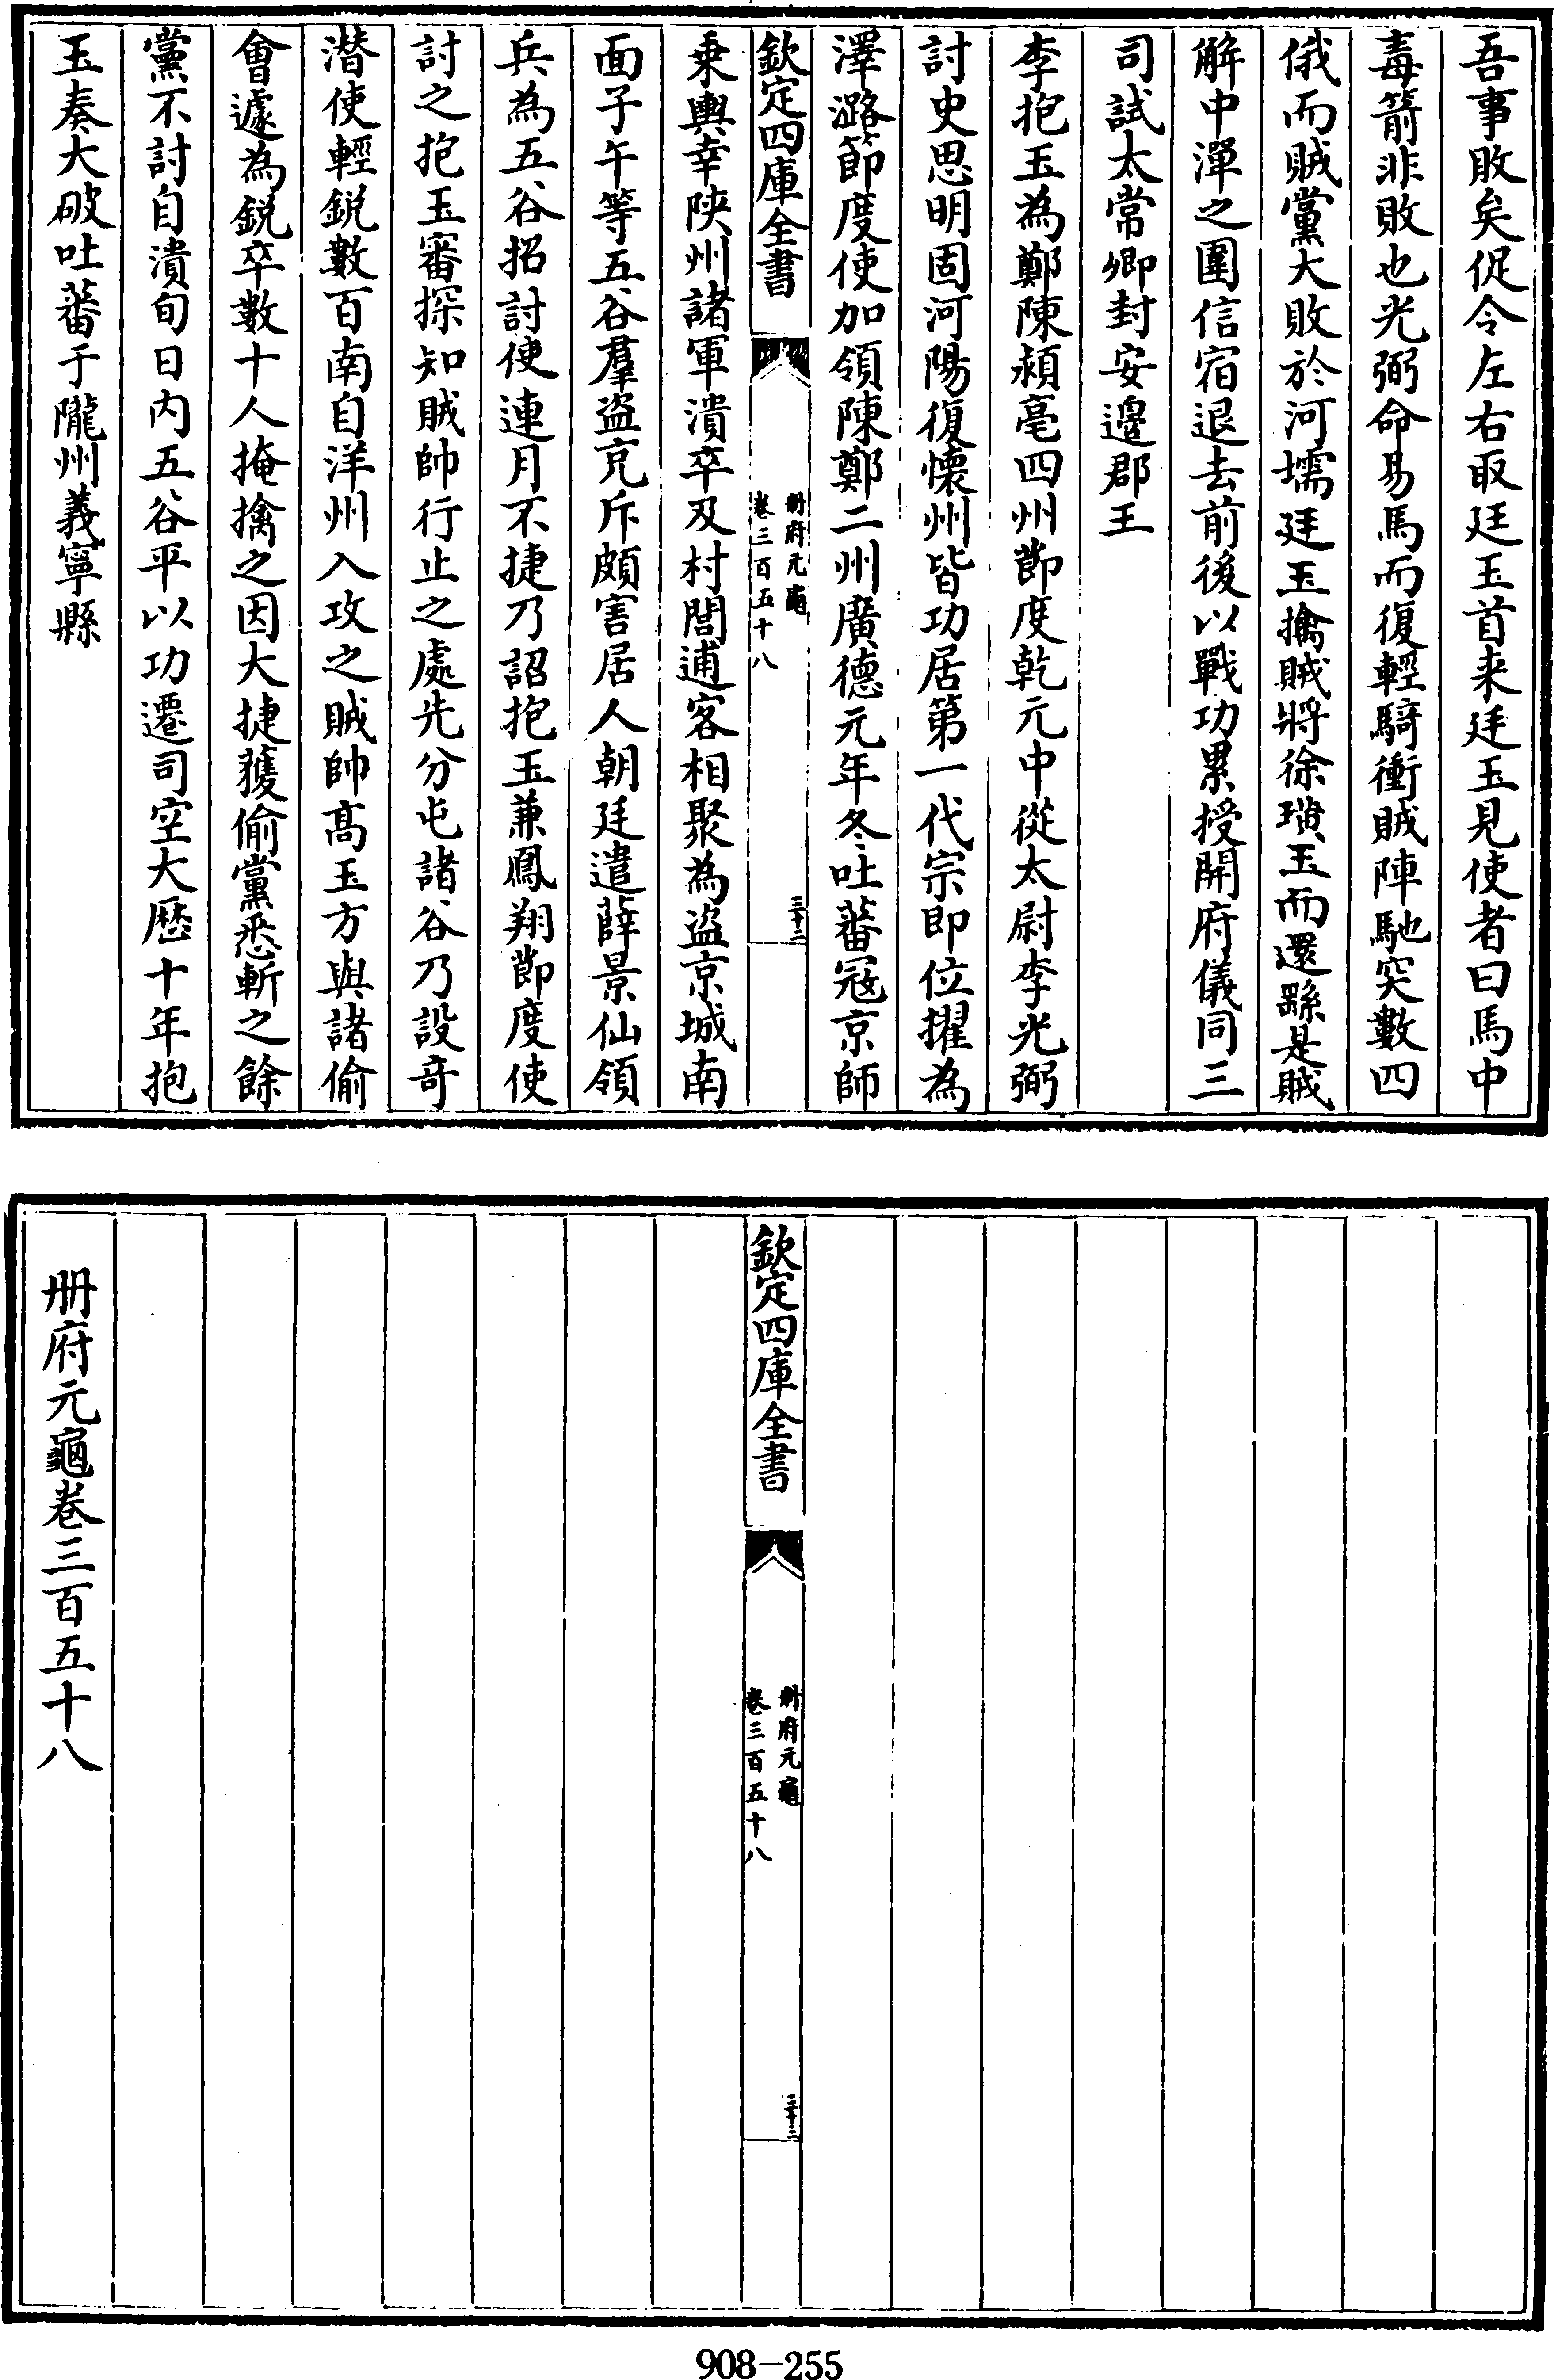 吾事敗矣促令左右取廷玉首来廷玉見使者曰馬中
毒箭非敗也光弼命易馬而復輕騎衝賊陣馳突數四
俄而賊黨大敗於河壖廷玉擒賊將徐璜玉而還繇是賊
解中潬之圍信宿退去前後以戰功累授開府儀同三
司試太常卿封安邊郡王
李抱玉為鄭陳潁亳四州節度乾元中從太尉李光弼
討史思明固河陽復懷州皆功居第一代宗即位擢為
澤潞節度使加領陳鄭二州廣德元年冬吐蕃冦京師
欽定四庫全書
冊府元龜
卷三百五十八
三十二
乗輿幸陜州諸軍潰卒及村閭逋客相聚為盜京城南
面子午等五谷羣盜充斥頗害居人朝廷遣薛景仙領
兵為五谷招討使連月不捷乃詔抱玉兼鳳翔節度使
討之抱玉審探知賊帥行止之處先分屯諸谷乃設竒
潛使輕鋭數百南自洋州入攻之賊帥髙玉方與諸偷
會遽為鋭卒數十人掩擒之因大捷獲偷黨悉斬之餘
黨不討自潰旬日内五谷平以功遷司空大歴十年抱
玉奏大破吐蕃于隴州義寧縣
欽定四庫全書
冊府元龜
卷三百五十八
三十三
冊府元龜卷三百五十八
908-255